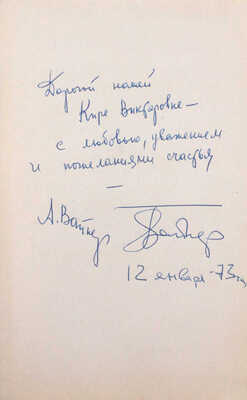 Дорогой нашей
Кире Викторовне –
с любовью, уважением
и пожеланиями счастья
–
А. Вайнер
12 января 73 г.